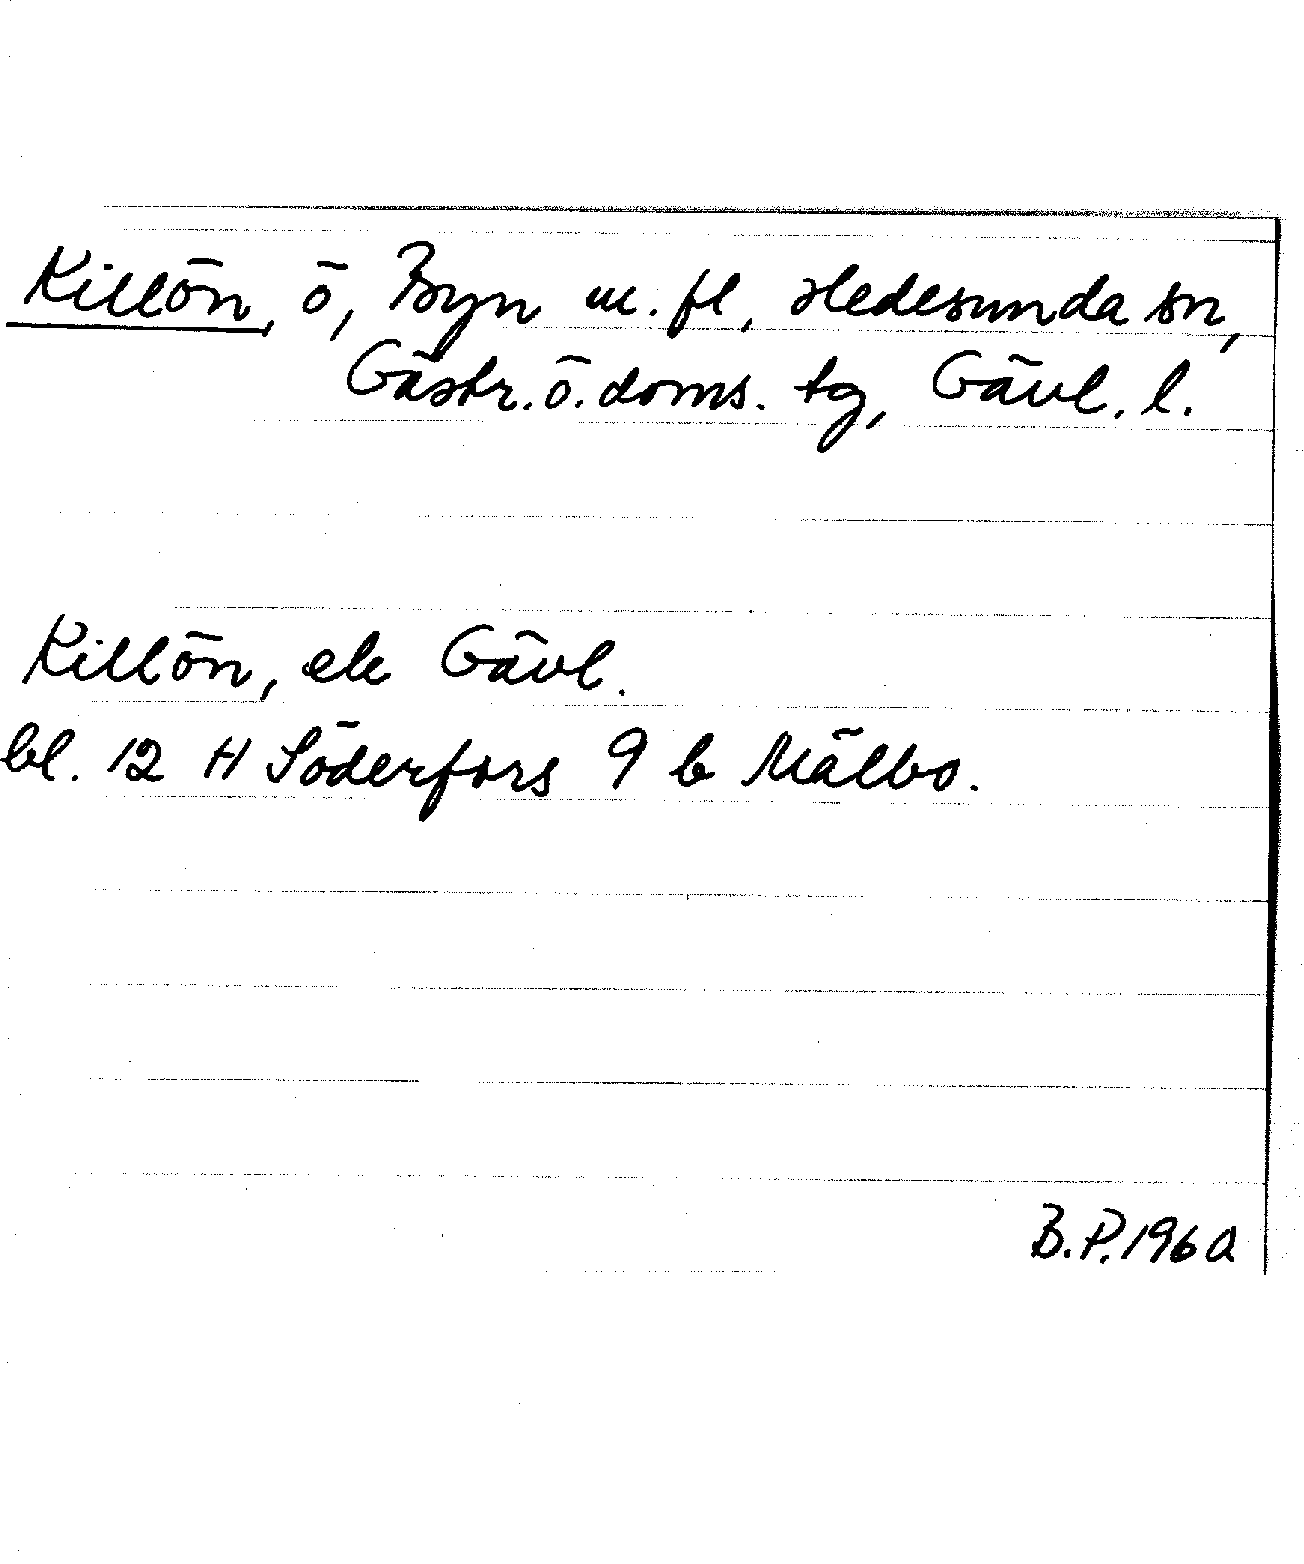 Killön, ö, Byn m. fl, Hedesunda sn,
Gästr. ö. doms. tg, Gävl. l.
Killön, ek Gävl.
bl. 12 H Söderfors 9 b Mälbo.
B.P. 1960